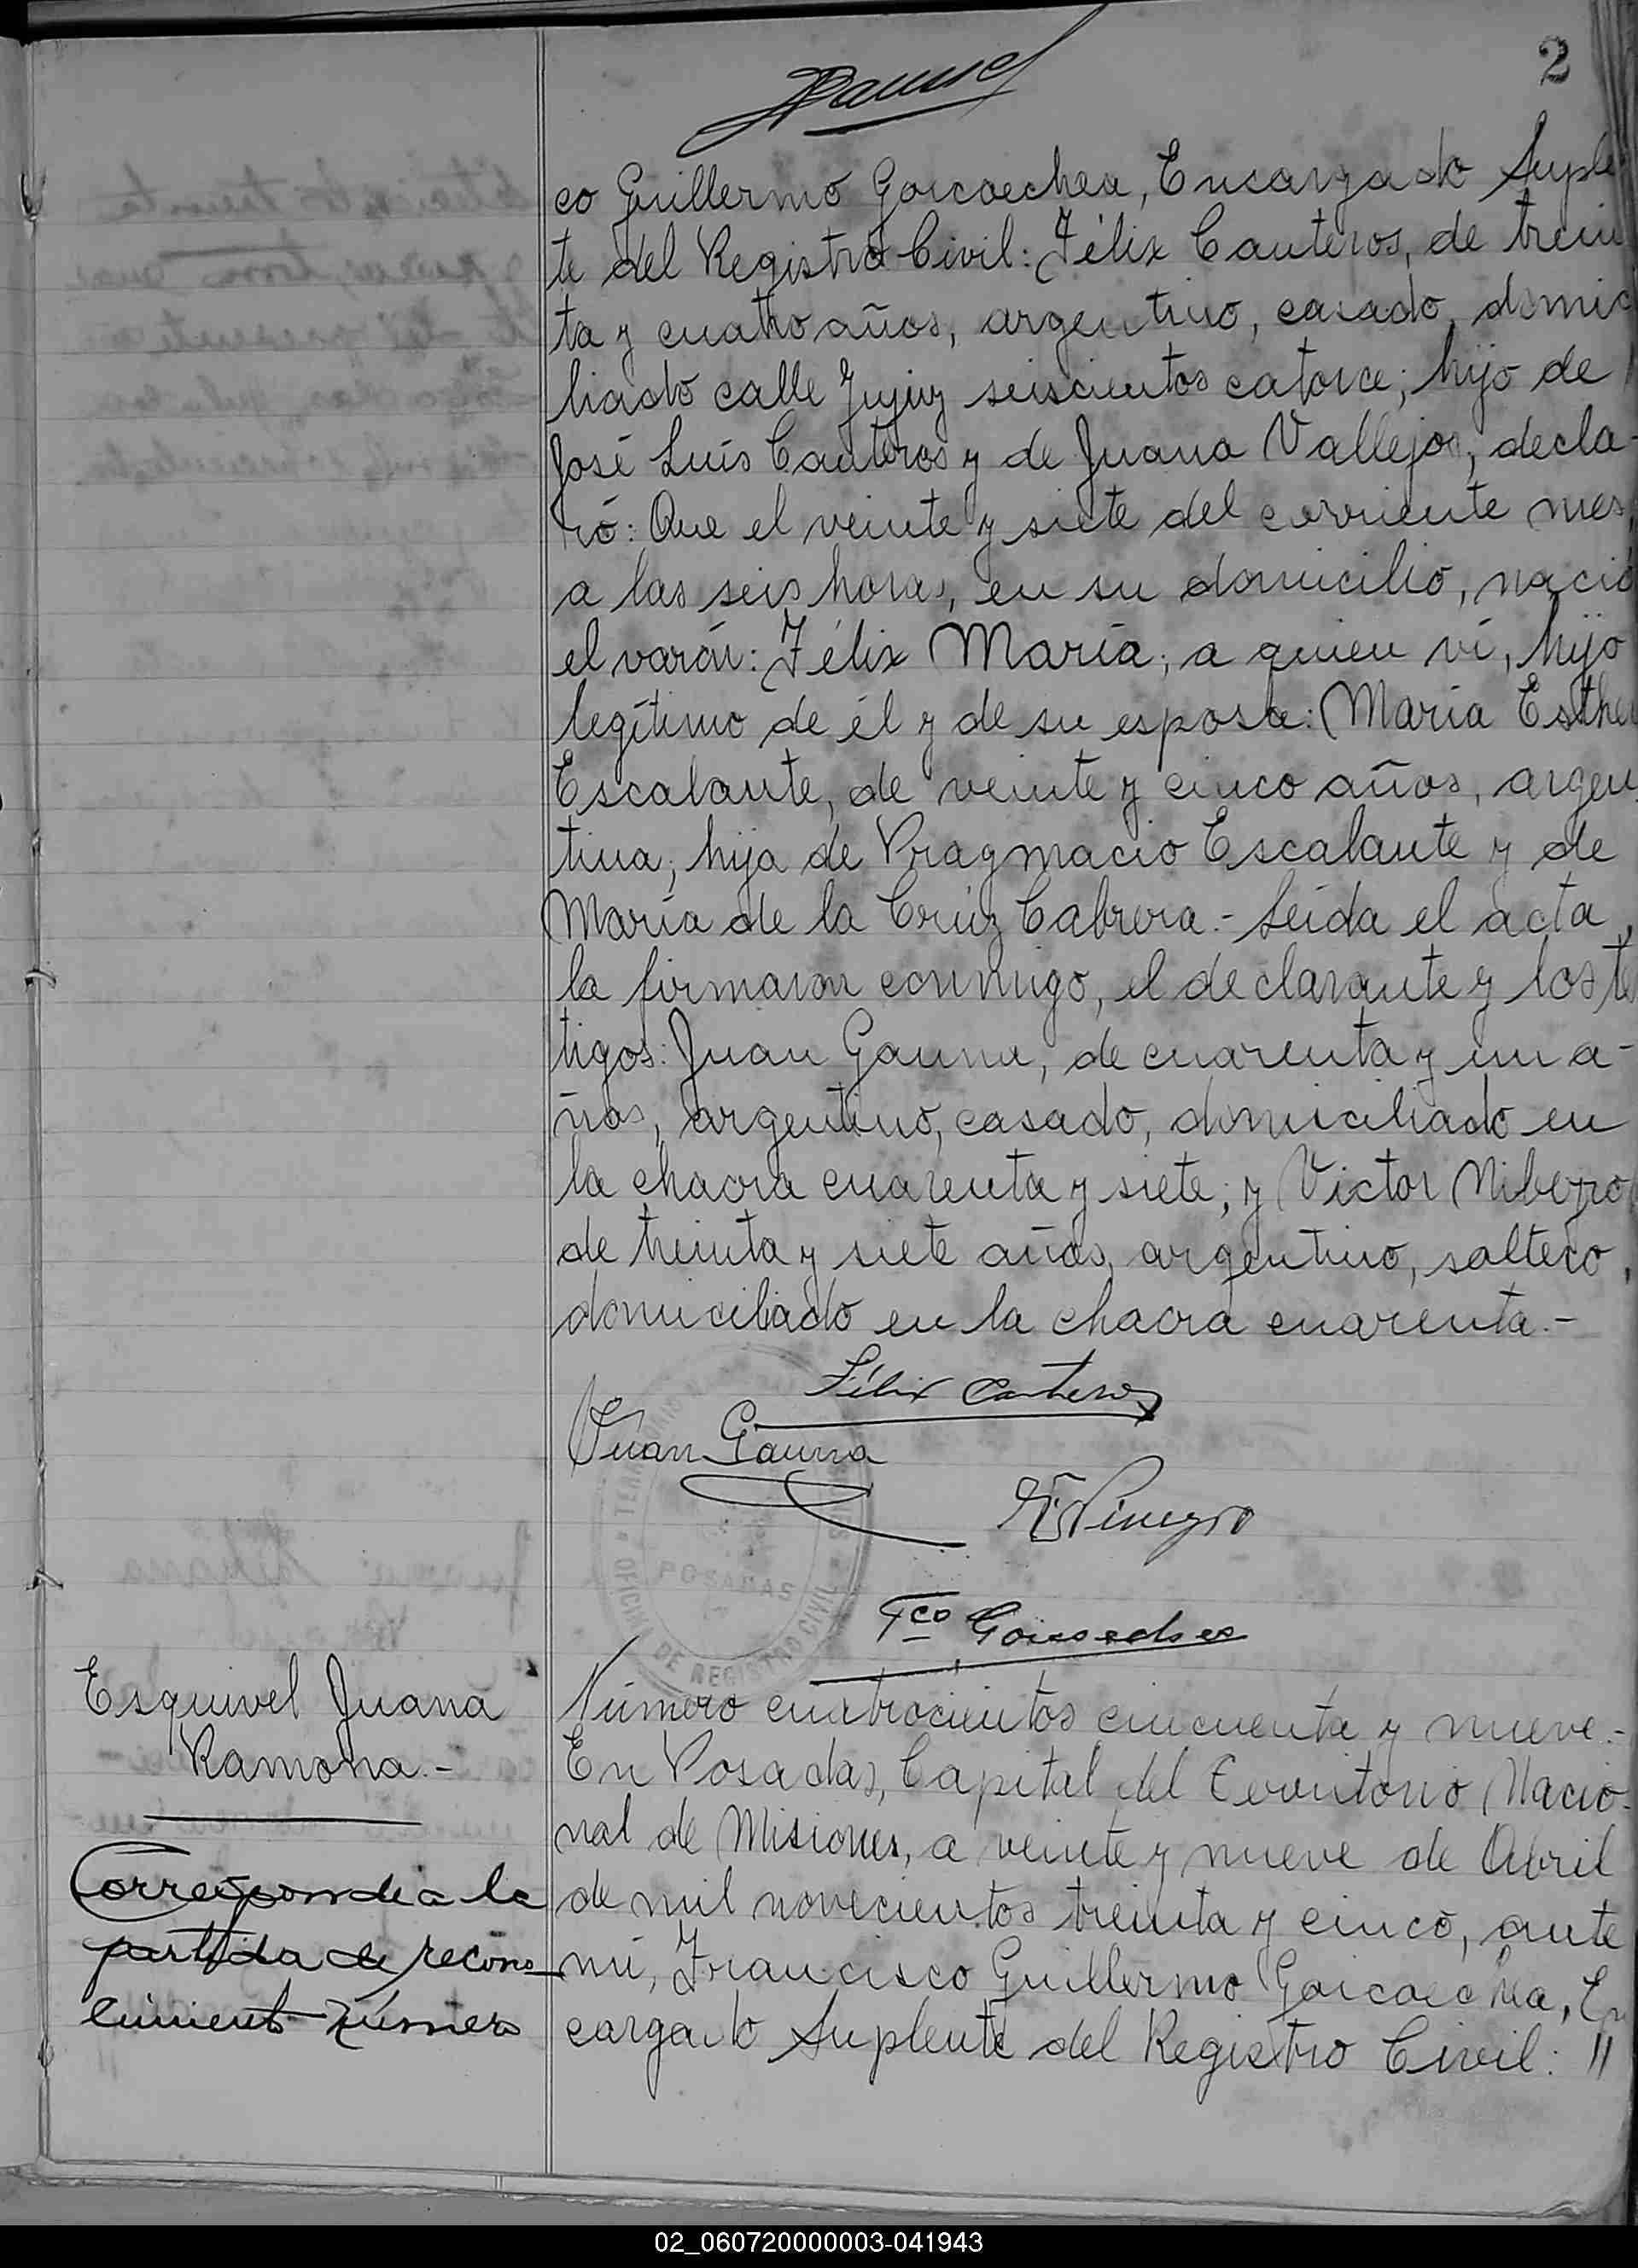 2
co Guillermo Goicoechea, Encargado Suple
te del Registro Civil: Félix Canteros, de trein
ta y cuatro años, argentino, casado, domic
liado calle Jujuy seiscientos catorce; hijo de
José Luís Canteros y de Juana Vallejos, decla-
ró: Que el veinte y siete del corriente mes,
a las seis horas, en su domicilio, nació
el varón: Félix María; a quien ví, hijo
legítimo de él y de su esposa: María Esther
Escalante, de veinte y cinco años, argen
tina; hija de Pragmacio Escalante y de
María de la Cruz Cabrera.- Leída el acta,
la firmaron conmigo, el declarante y los te
tigos: Juan Gauna, de cuarenta y un a-
ños, argentino, casado, domiciliado en
la chacra cuarenta y siete; y Víctor
de treinta y siete años, argentino, soltero,
domiciliado en la chacra cuarenta.-
Félix Canteros
Juan Gauna
POSADAS
OFICINA DE REGISTRO CIVIL
Fco Goicoechea
Esquivel Juana
Ramona.-
Corresponde a la
partida de recono-
cimiento número
Número cuatrocientos cincuenta y nueve.-
En Posadas, Capital del Territorio Nacio-
nal de Misiones, a veinte y nueve de Abril
de mil novecientos treinta y cinco, ante
mí, Francisco Guillermo Goicoechea, En
cargado Suplente del Registro Civil: "
02_060720000003-041943